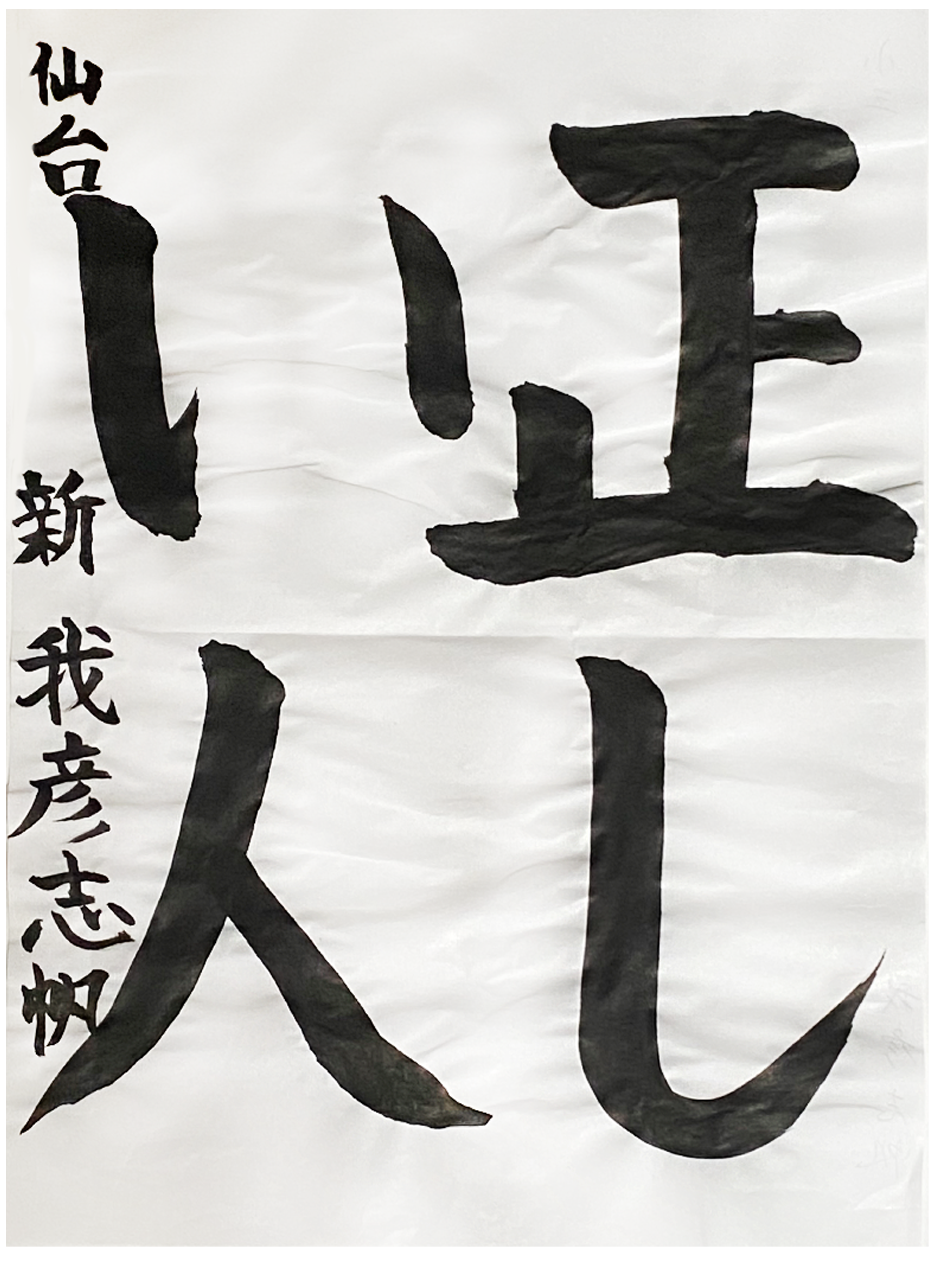 正し
い人
仙台 新 我彦志帆